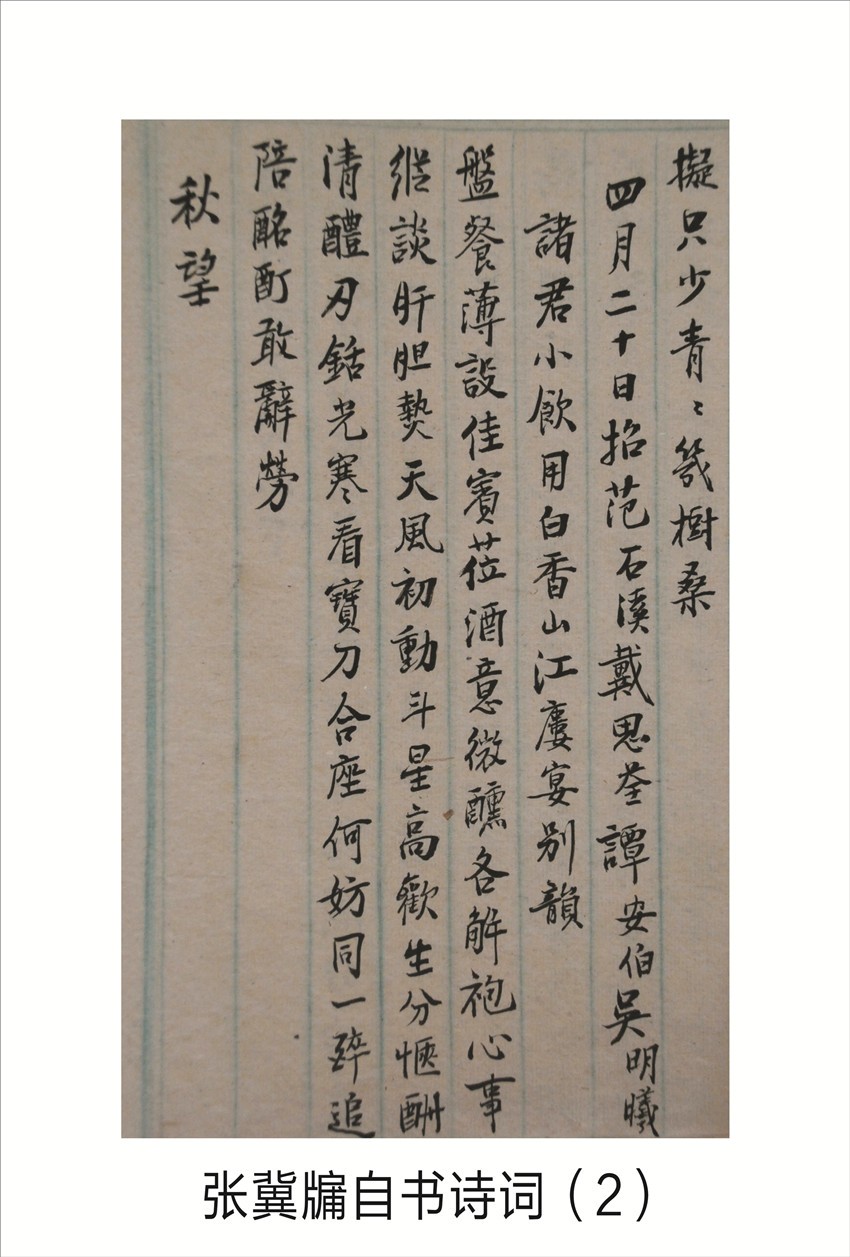 擬只少青〻幾樹桑
四月二十日招范石溪戴思荃譚安伯吳明曦
諸君小飲用白香山江廔宴别韻
盤餐薄設佳賓莅酒意微醺各解袍心事
縱談肝胆熱天風初動斗星高歡生分愜酬
清醴刃銛光寒看寶刀合座何妨同一醉追
陪酩酊敢辭勞
秋望
张冀牖自书诗词（2）